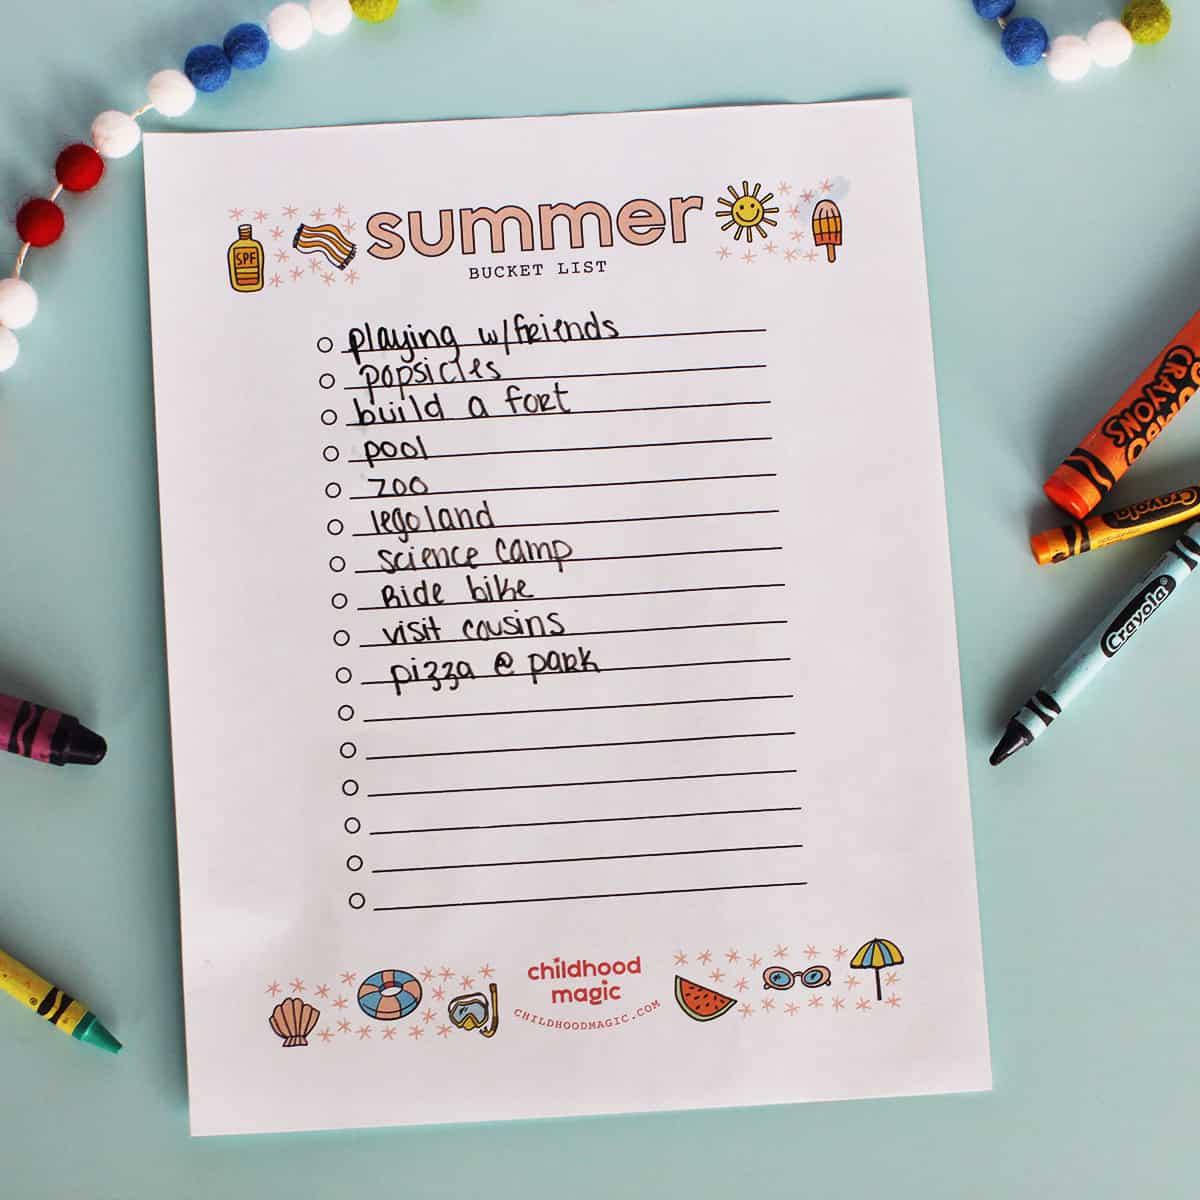 summer
SPF
BUCKET LIST
playing w/friends
popsicles
build a fort
pool
zoo
legoland
science camp
Ride bike
visit cousins
pizza @ park
childhood
magic
CHILDHOODMAGIC.COM
CRAYONS
Crayola
Crayola®